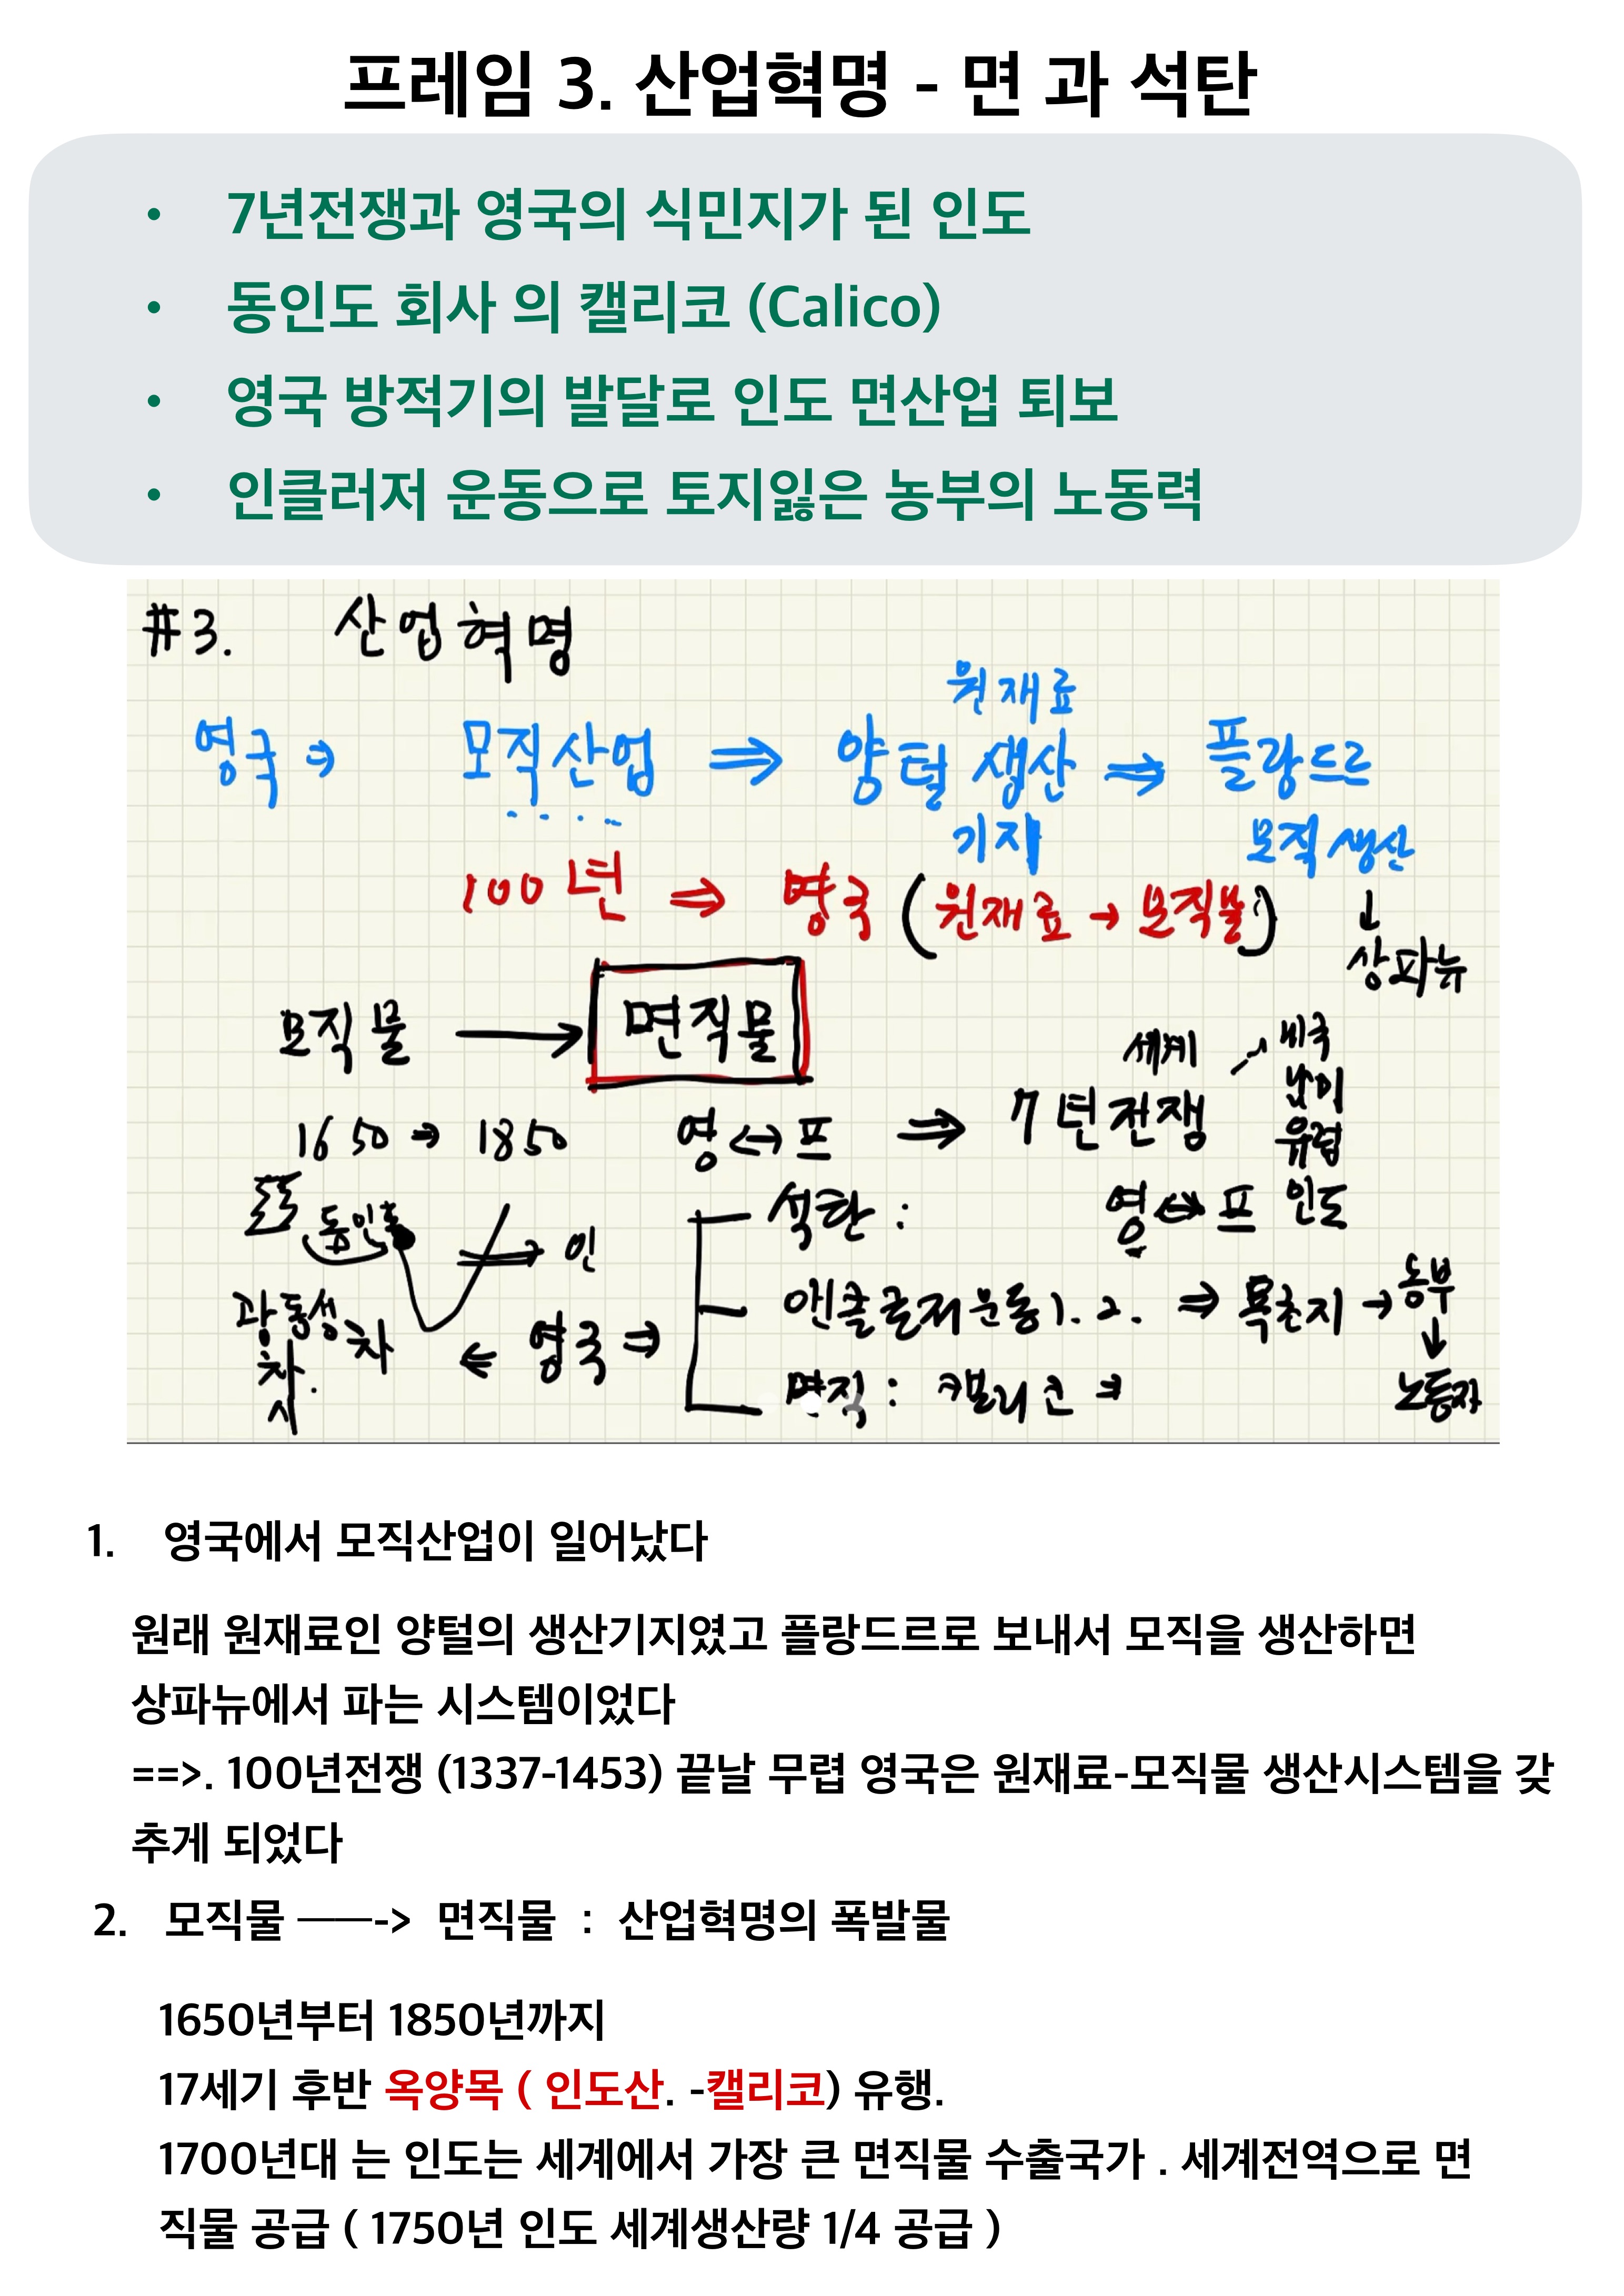 프레임 3. 산업혁명 - 면 과 석탄
• 7년전쟁과 영국의 식민지가 된 인도
• 동인도 회사 의 캘리코 (Calico)
• 영국 방적기의 발달로 인도 면산업 퇴보
• 인클러저 운동으로 토지잃은 농부의 노동력
#3. 산업혁명
원재료
영국 ⇒ 모직산업 ⇒ 양털 생산 ⇒ 플랑드르
기지 모직생산
100년 ⇒ 영국 (원재료 → 모직물) ↓
상파뉴
모직물 → 면직물
세계 미국
남미
1650 ⇒ 1850 영 ↔ 프 ⇒ 7년전쟁 유럽
동인도 → 인 석탄 : 영 ↔ 프 인도
광동성 차 ← 영국 ⇒ 앤클로저운동 1. 2. ⇒ 목초지 → 농부
차. ↓
시 면직 : 캘리코 ⇒ 노동자
1. 영국에서 모직산업이 일어났다
원래 원재료인 양털의 생산기지였고 플랑드르로 보내서 모직을 생산하면
상파뉴에서 파는 시스템이었다
==>. 100년전쟁 (1337-1453) 끝날 무렵 영국은 원재료-모직물 생산시스템을 갖
추게 되었다
2. 모직물 ——-> 면직물 : 산업혁명의 폭발물
1650년부터 1850년까지
17세기 후반 옥양목 ( 인도산. -캘리코) 유행.
1700년대 는 인도는 세계에서 가장 큰 면직물 수출국가 . 세계전역으로 면
직물 공급 ( 1750년 인도 세계생산량 1/4 공급 )